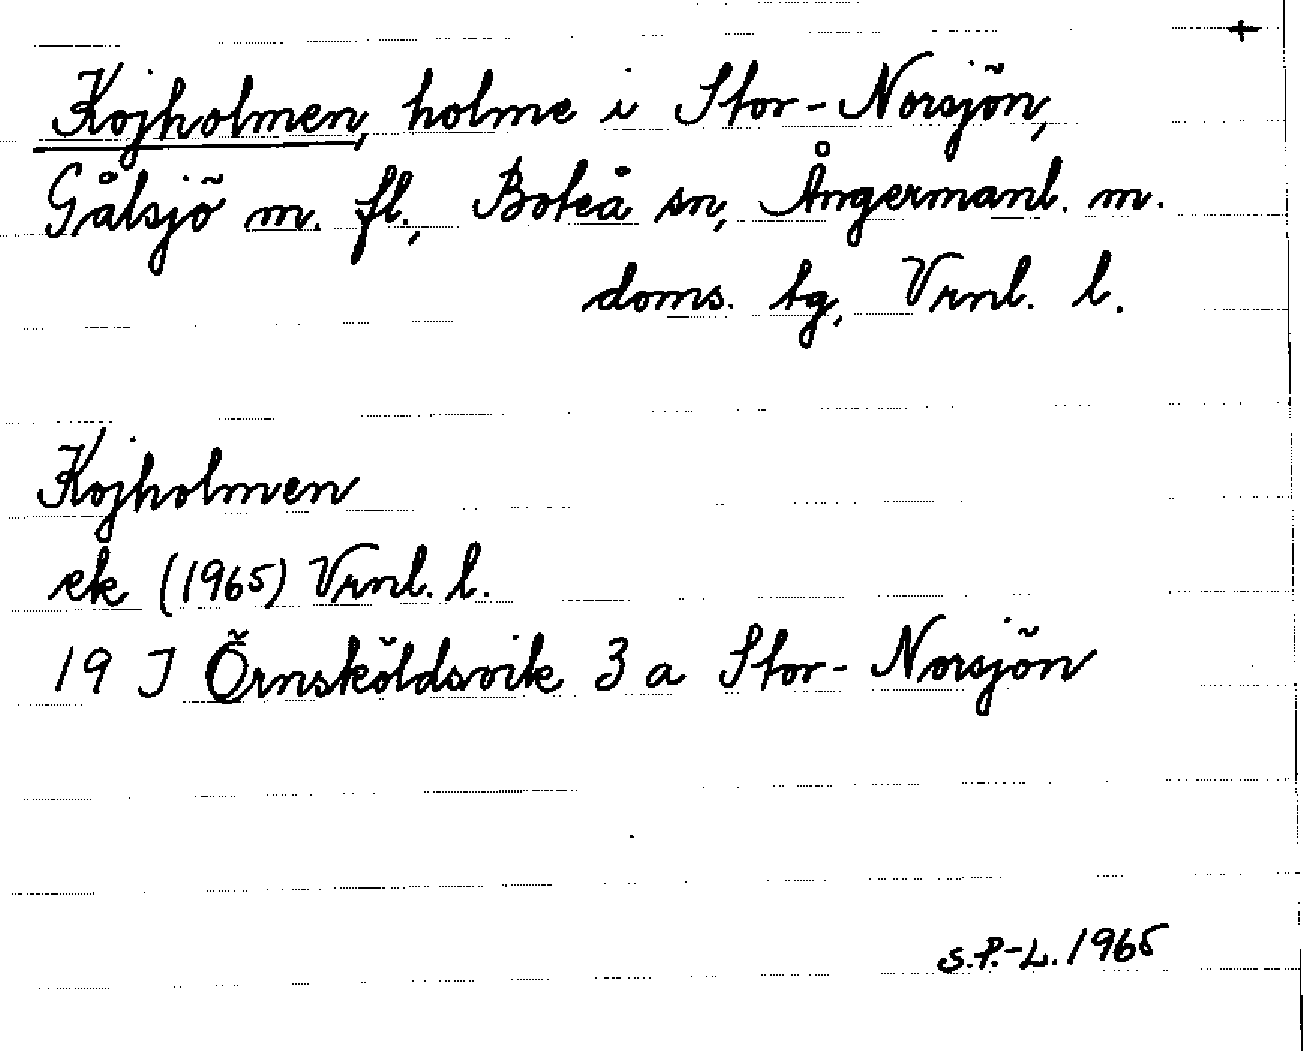 +
Kojholmen, holme i Stor-Norsjön,
Gålsjö m. fl., Boteå sn, Ångermanl. m.
doms. tg, Vrnl. l.
Kojholmen
ek (1965) Vrnl. l.
19 J Örnsköldsvik 3 a Stor-Norsjön
S.P.-L. 1965